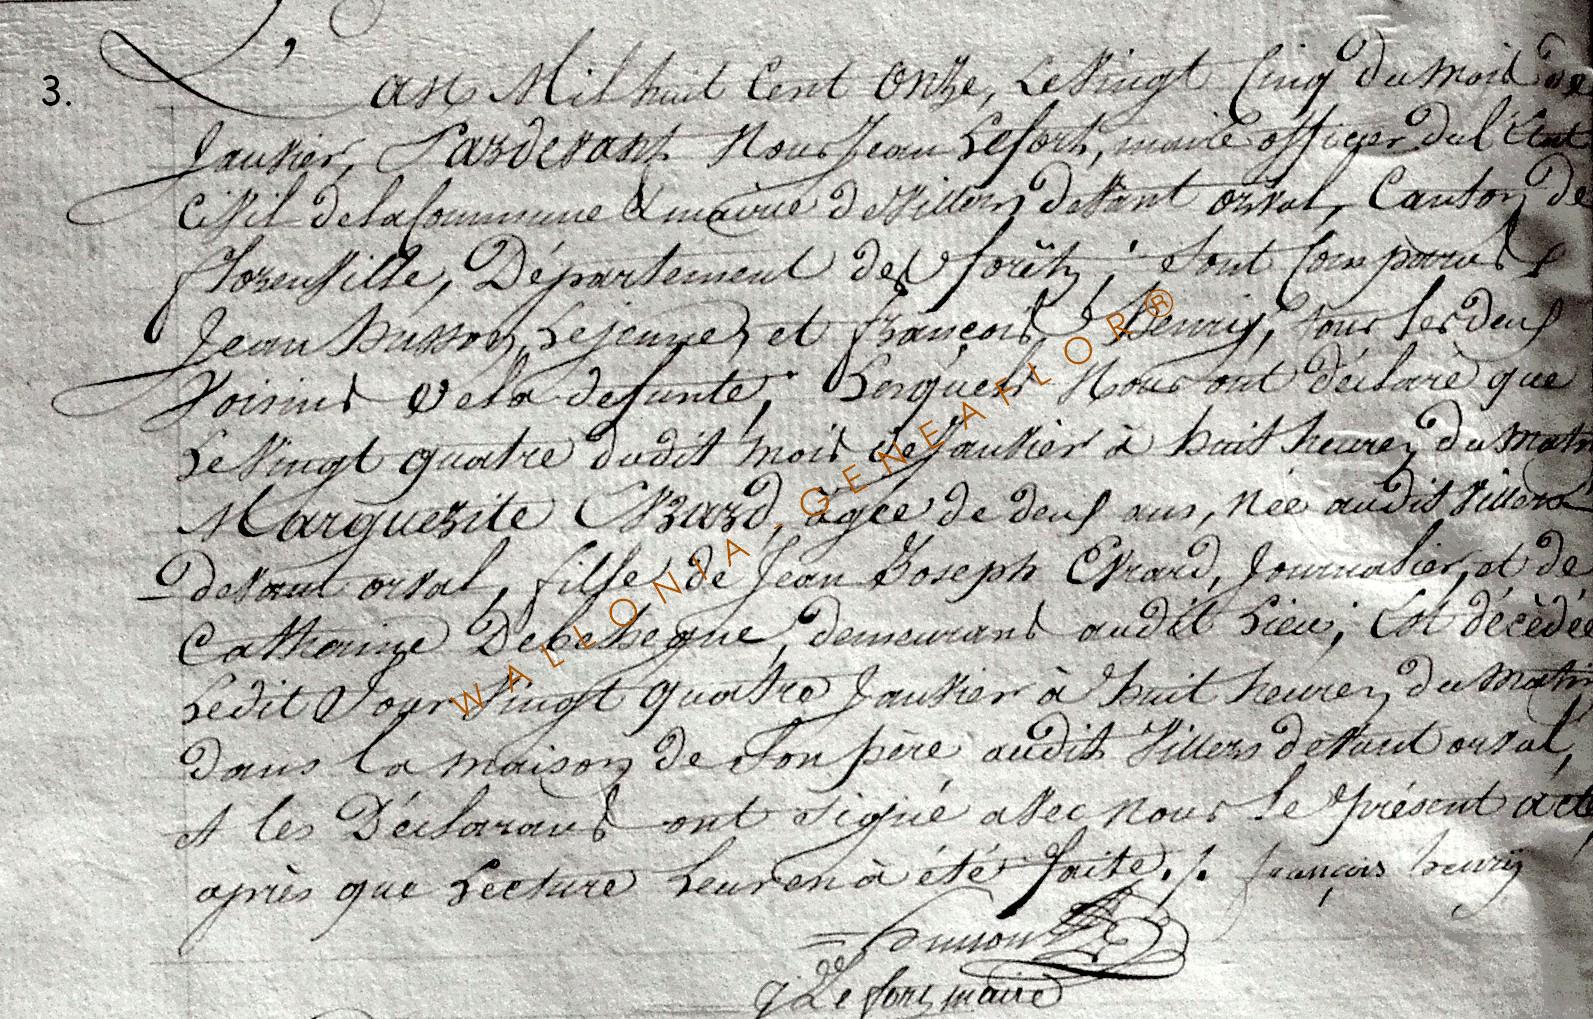 3.
L'an Mil huit Cent Onze, Le Vingt Cinq du mois de
Janvier, Pardevant Nous Jean Lefort, maire officier de l'Etat
Civil de la Commune & mairie de Villers devant orval, Canton de
florenville, Département des forêts ; Sont Comparus
Jean husson Lejeune, et françois henrij, tous les deux
Voisins de la defunte, Lesquels Nous ont déclaré que
Le Vingt quatre dudit mois de Janvier à huit heures du matin
Marguerite Evrard, àgée de deux ans, Née audit Villers
devant orval, fille de Jean Joseph Evrard, Journalier, et de
Catherine demeurans audit Lieu, Est décèdée
Ledit Jour Vingt quatre Janvier à huit heures du matin
dans la maison de Son père audit Villers devant orval,
et les Déclarans ont signé avec nous le présent acte
après que Lecture Leur en à été faite ./. françois henrij
husson
j Lefort maire
WALLONIA.GENEAFLOR®